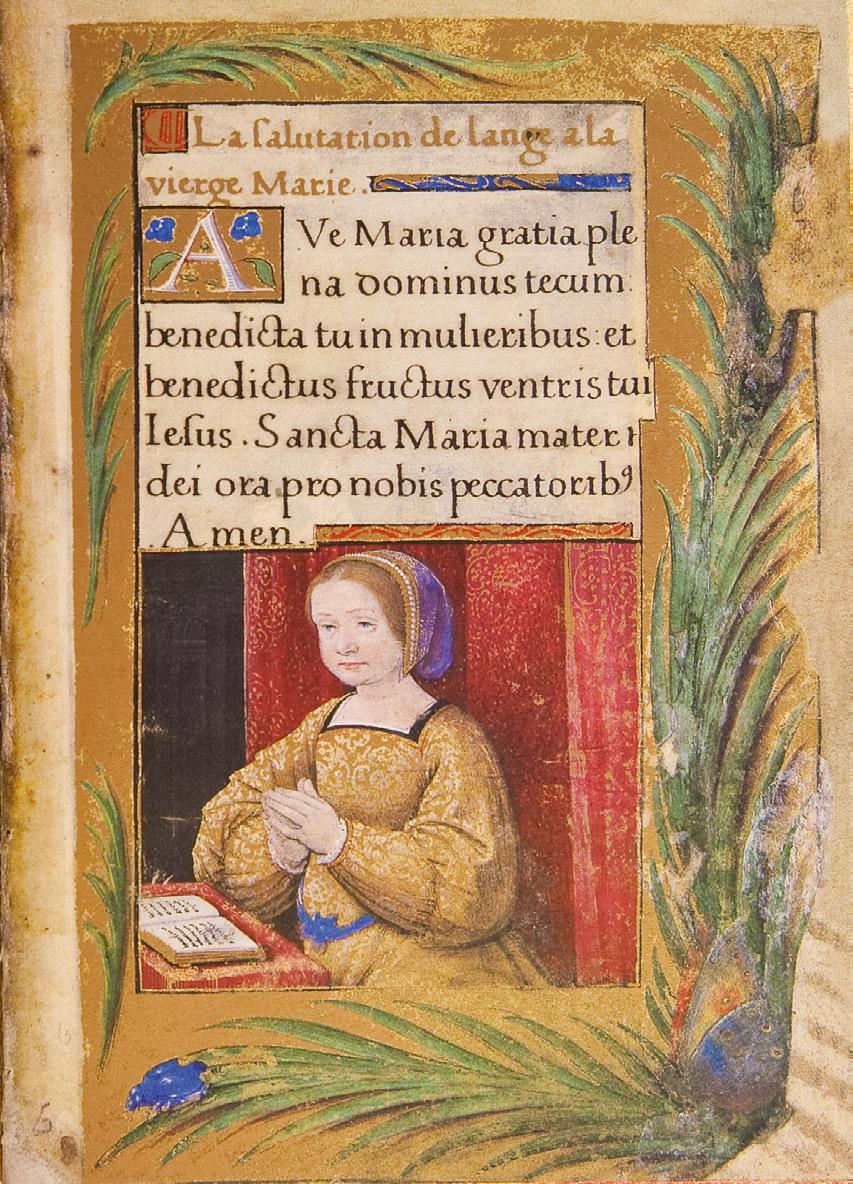 La ſalutation de lange a la
vierge Marie.
AVe Maria gratia ple
na dominus tecum:
benedicta tu in mulieribus: et
benedictus fructus ventris tui
Ieſus. Sancta Maria mater
dei ora pro nobis peccatoribꝰ
. Amen.